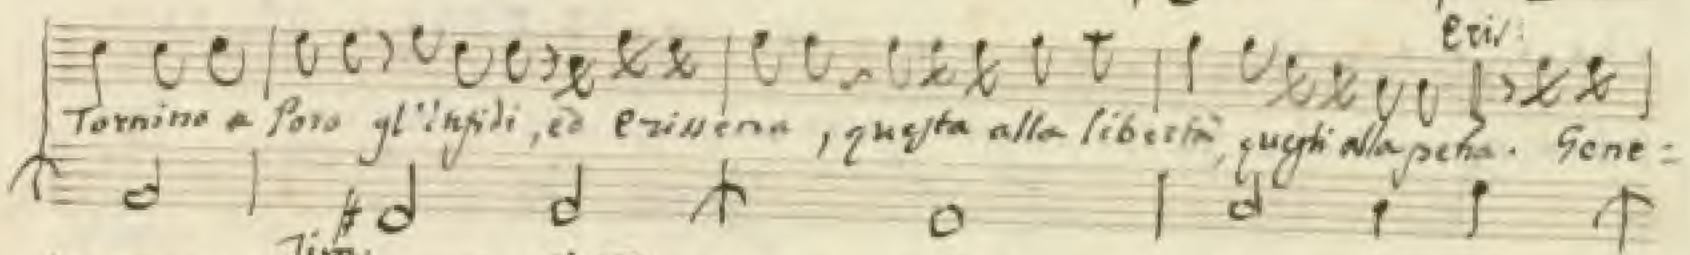 Eris:
Tornino a Poro gl'infidi, ed Erissena, questa alla libertà, questi alla pena. Gene=